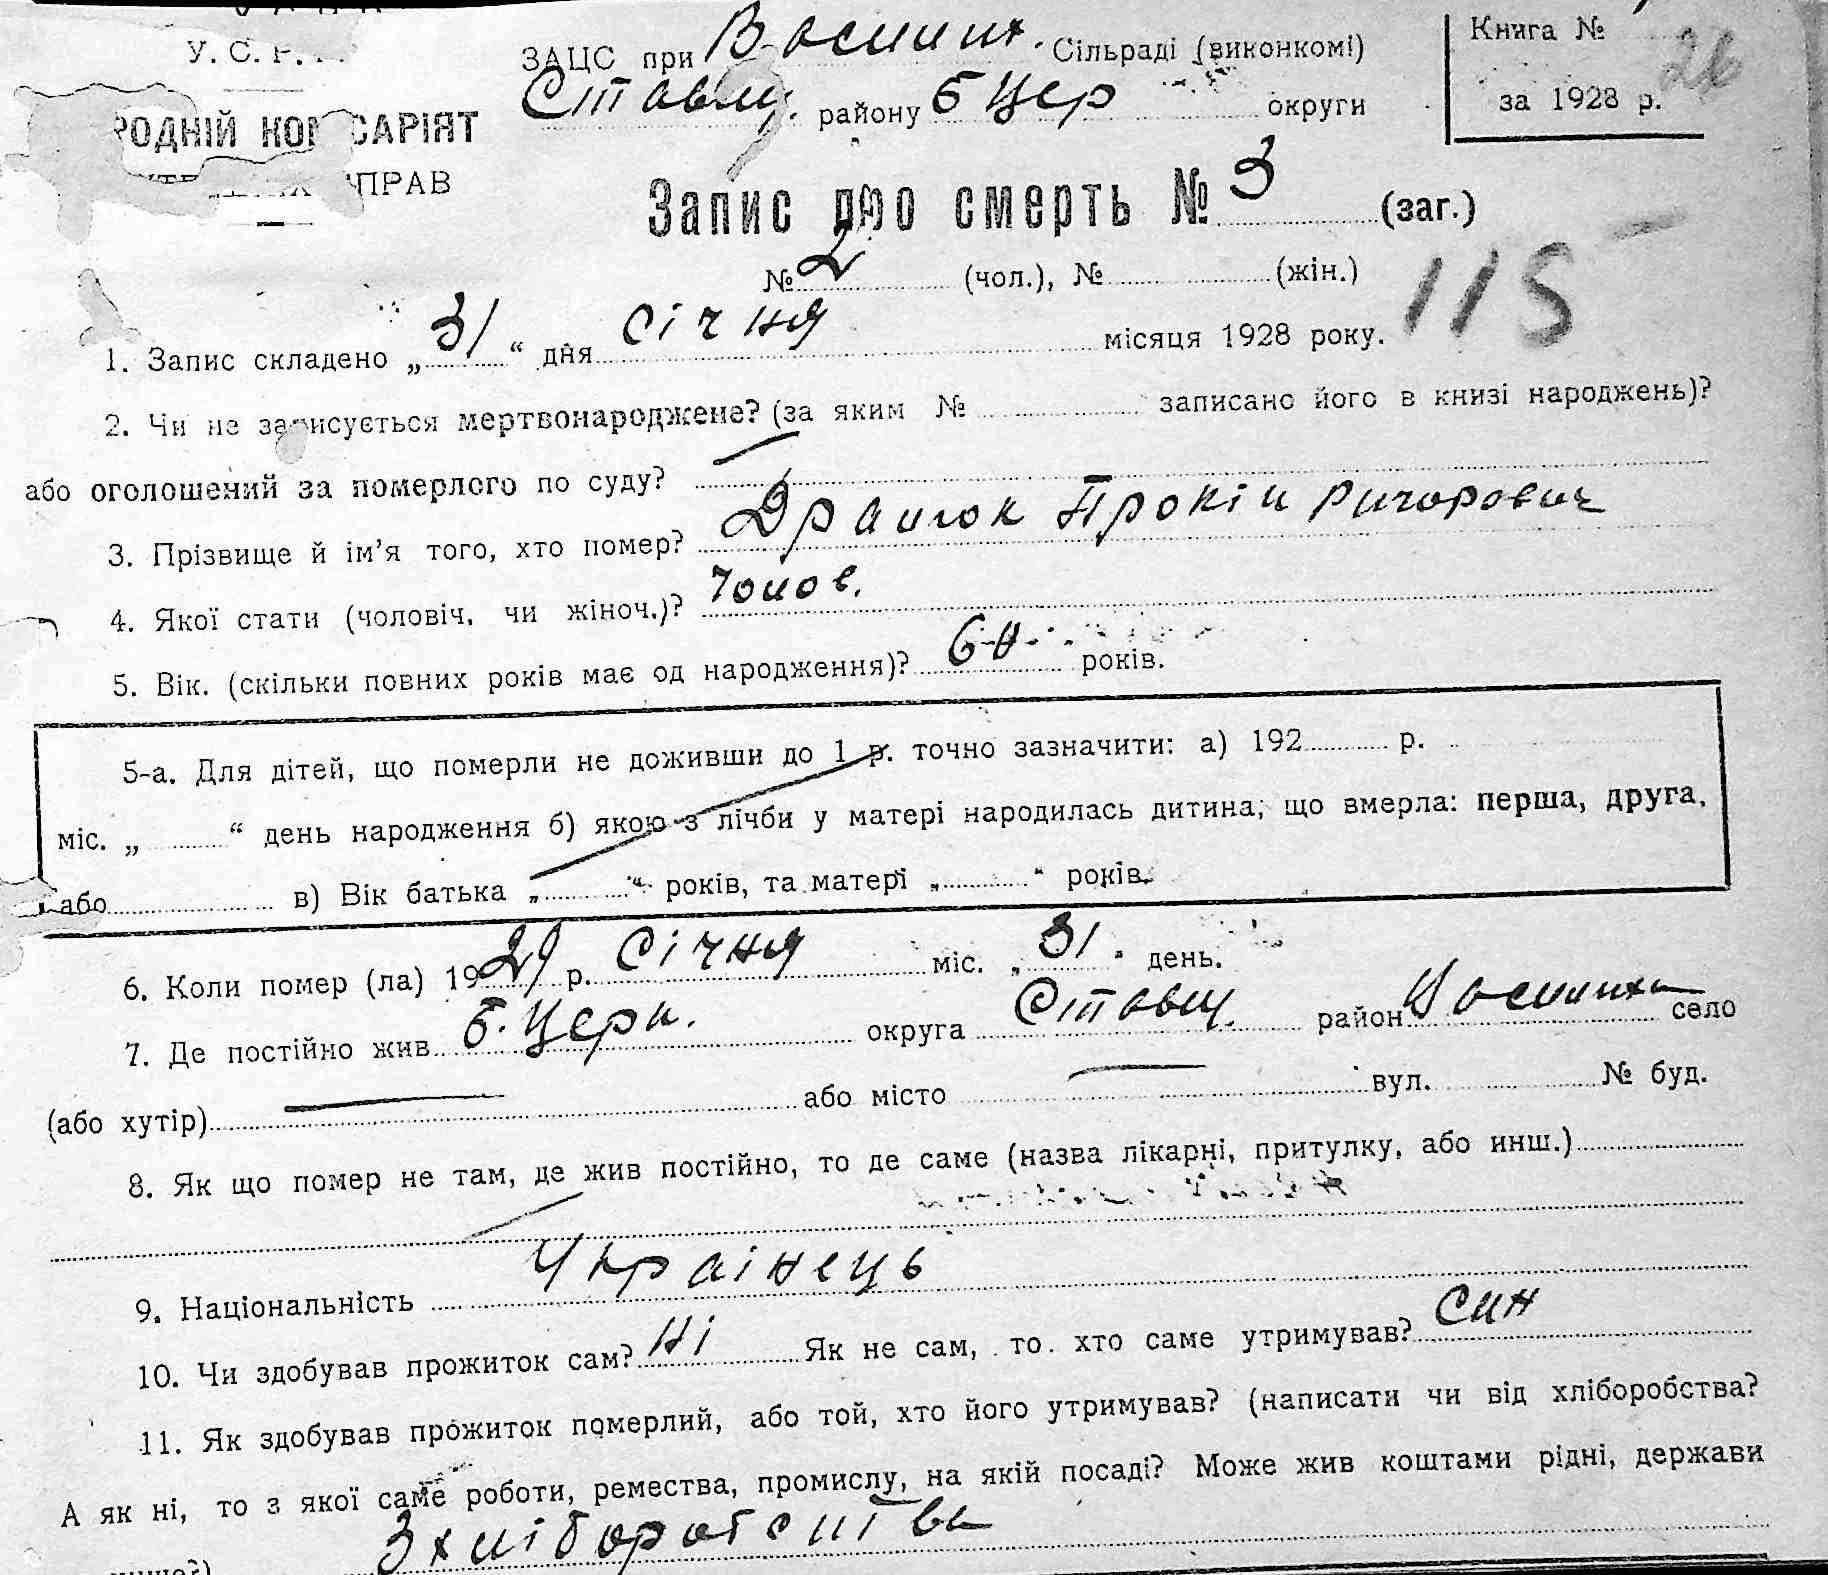 У. С. Р. Р.
ЗАЦС при Василих. Сільраді (виконкомі)
Книга №
26
Ставищ. району Б Цер округи
за 1928 р.
РОДНІЙ КОМІСАРІЯТ
СПРАВ
Запис про смерть № 3 (заг.)
№ 2 (чол.), № (жін.)
115
1. Запис складено „31“ дня січня місяця 1928 року.
2. Чи не записується мертвонароджене? (за яким № записано його в книзі народжень)?
або оголошений за померлого по суду? —
3. Прізвище й ім’я того, хто помер? Прокіп Григорович
4. Якої стати (чоловіч. чи жіноч.)? Чолов.
5. Вік. (скільки повних років має од народження)? 60 років.
5-а. Для дітей, що померли не доживши до 1 р. точно зазначити: а) 192 р.
міс. „ “ день народження б) якою з лічби у матері народилась дитина, що вмерла: перша, друга,
або в) Вік батька „ “ років, та матері „ “ років.
6. Коли помер (ла) 1928 р. січня міс. „31“ день.
7. Де постійно жив Б. Церк. округа Ставищ. район село
(або хутір) — або місто — вул. № буд.
8. Як що помер не там, де жив постійно, то де саме (назва лікарні, притулку, або инш.)
9. Національність Українець
10. Чи здобував прожиток сам? Ні Як не сам, то хто саме утримував? син
11. Як здобував прожиток померлий, або той, хто його утримував? (написати чи від хліборобства?
А як ні, то з якої саме роботи, ремества, промислу, на якій посаді? Може жив коштами рідні, держави
З хліборобства